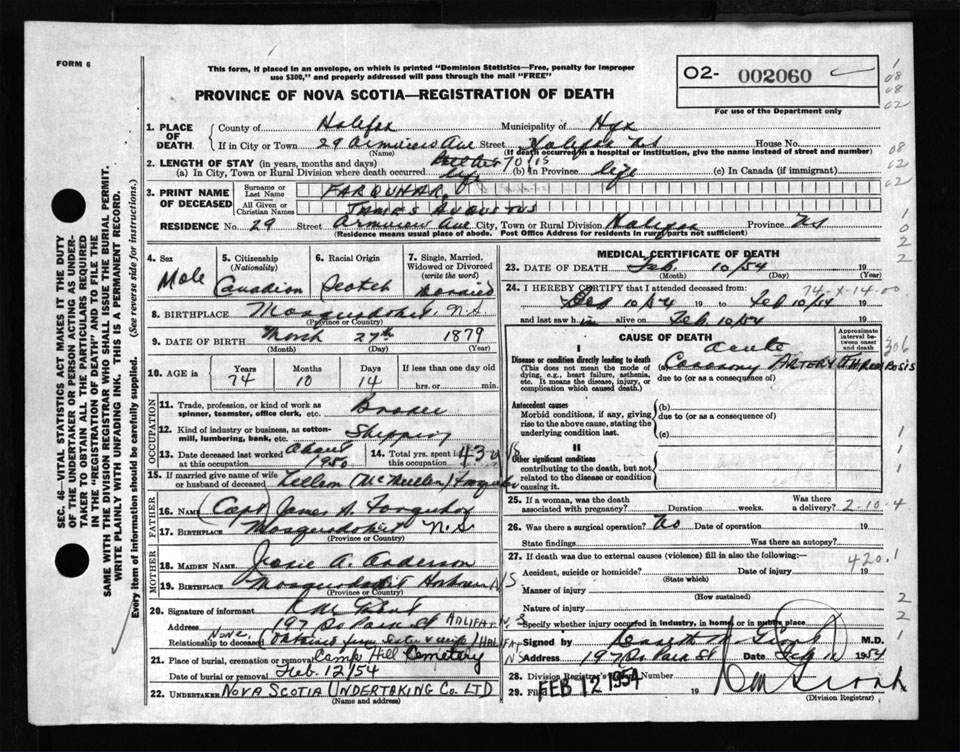 FORM 6
This form, if placed in an envelope, on which is printed "Dominion Statistics—Free, penalty for improper
use $300," and properly addressed will pass through the mail "FREE"
PROVINCE OF NOVA SCOTIA—REGISTRATION OF DEATH
O2- 002060
For use of the Department only
1. PLACE OF DEATH. County of Halifax Municipality of Hfx
If in City or Town 29 Armview Ave Street Halifax NS House No.
(Name) (If death occurred in a hospital or institution, give the name instead of street and number)
2. LENGTH OF STAY (in years, months and days)
(a) In City, Town or Rural Division where death occurred life (b) In Province life (c) In Canada (if immigrant)
3. PRINT NAME OF DECEASED Surname or Last Name FARQUHAR
All Given or Christian Names JAMES AUGUSTUS
RESIDENCE No. 29 Street Armview Ave City, Town or Rural Division Halifax Province NS
(Residence means usual place of abode. Post Office Address for residents in rural parts not sufficient)
4. Sex Male
5. Citizenship (Nationality) Canadian
6. Racial Origin Scotch
7. Single, Married, Widowed or Divorced (write the word) Married
8. BIRTHPLACE Musquodoboit, N.S.
(Province or Country)
9. DATE OF BIRTH March 27th 1879
(Month) (Day) (Year)
10. AGE in Years 74 Months 10 Days 14 If less than one day old
hrs. or min.
OCCUPATION
11. Trade, profession, or kind of work as spinner, teamster, office clerk, etc. Broker
12. Kind of industry or business, as cotton-mill, lumbering, bank, etc. Shipping
13. Date deceased last worked at this occupation about 1950
14. Total yrs. spent in this occupation 43
15. If married give name of wife or husband of deceased Lillian (McMullen) Farquhar
FATHER
16. NAME Capt James A. Farquhar
17. BIRTHPLACE Musquodoboit N.S.
(Province or Country)
MOTHER
18. MAIDEN NAME Jessie A. Anderson
19. BIRTHPLACE Musquodoboit Harbour NS
(Province or Country)
20. Signature of informant
Address 197 So Park St HALIFAX N.S
Relationship to deceased None,
21. Place of burial, cremation or removal Camp Hill Cemetery
Date of burial or removal Feb. 12/54
22. UNDERTAKER NOVA SCOTIA UNDERTAKING Co. LTD
(Name and address)
MEDICAL CERTIFICATE OF DEATH
23. DATE OF DEATH Feb. 10/54 19
(Month) (Day) (Year)
24. I HEREBY CERTIFY that I attended deceased from:
Feb 10/54 19 to Feb 10/54 19
and last saw him alive on Feb. 10/54 19
CAUSE OF DEATH
Approximate interval between onset and death
I
Disease or condition directly leading to death
(This does not mean the mode of dying, e.g., heart failure, asthenia, etc. It means the disease, injury, or complication which caused death.)
acute
Coronary ARTERY THROMBOSIS
due to (or as a consequence of)
Antecedent causes
Morbid conditions, if any, giving rise to the above cause, stating the underlying condition last.
(b)
due to (or as a consequence of)
(c)
II
Other significant conditions
contributing to the death, but not related to the disease or condition causing it.
25. If a woman, was the death associated with pregnancy? Duration weeks. Was there a delivery?
2-10-4
26. Was there a surgical operation? No Date of operation
State findings Was there an autopsy?
27. If death was due to external causes (violence) fill in also the following:—
420.1
Accident, suicide or homicide? Date of injury 19
(State which)
Manner of injury
(How sustained)
Nature of injury
Specify whether injury occurred in industry, in home or in public place
Signed by M.D.
Address 197 So Park St Date Feb 12 1954
28. Division Registrar's Record Number
29. Filed FEB 12 1954 19
(Division Registrar)
SEC. 46—VITAL STATISTICS ACT MAKES IT THE DUTY
OF THE UNDERTAKER OR PERSON ACTING AS UNDERTAKER
TO OBTAIN ALL THE PARTICULARS REQUIRED
IN THE "REGISTRATION OF DEATH" AND TO FILE THE
SAME WITH THE DIVISION REGISTRAR WHO SHALL ISSUE THE BURIAL PERMIT.
WRITE PLAINLY WITH UNFADING INK. THIS IS A PERMANENT RECORD.
Every item of information should be carefully supplied. (See reverse side for instructions.)